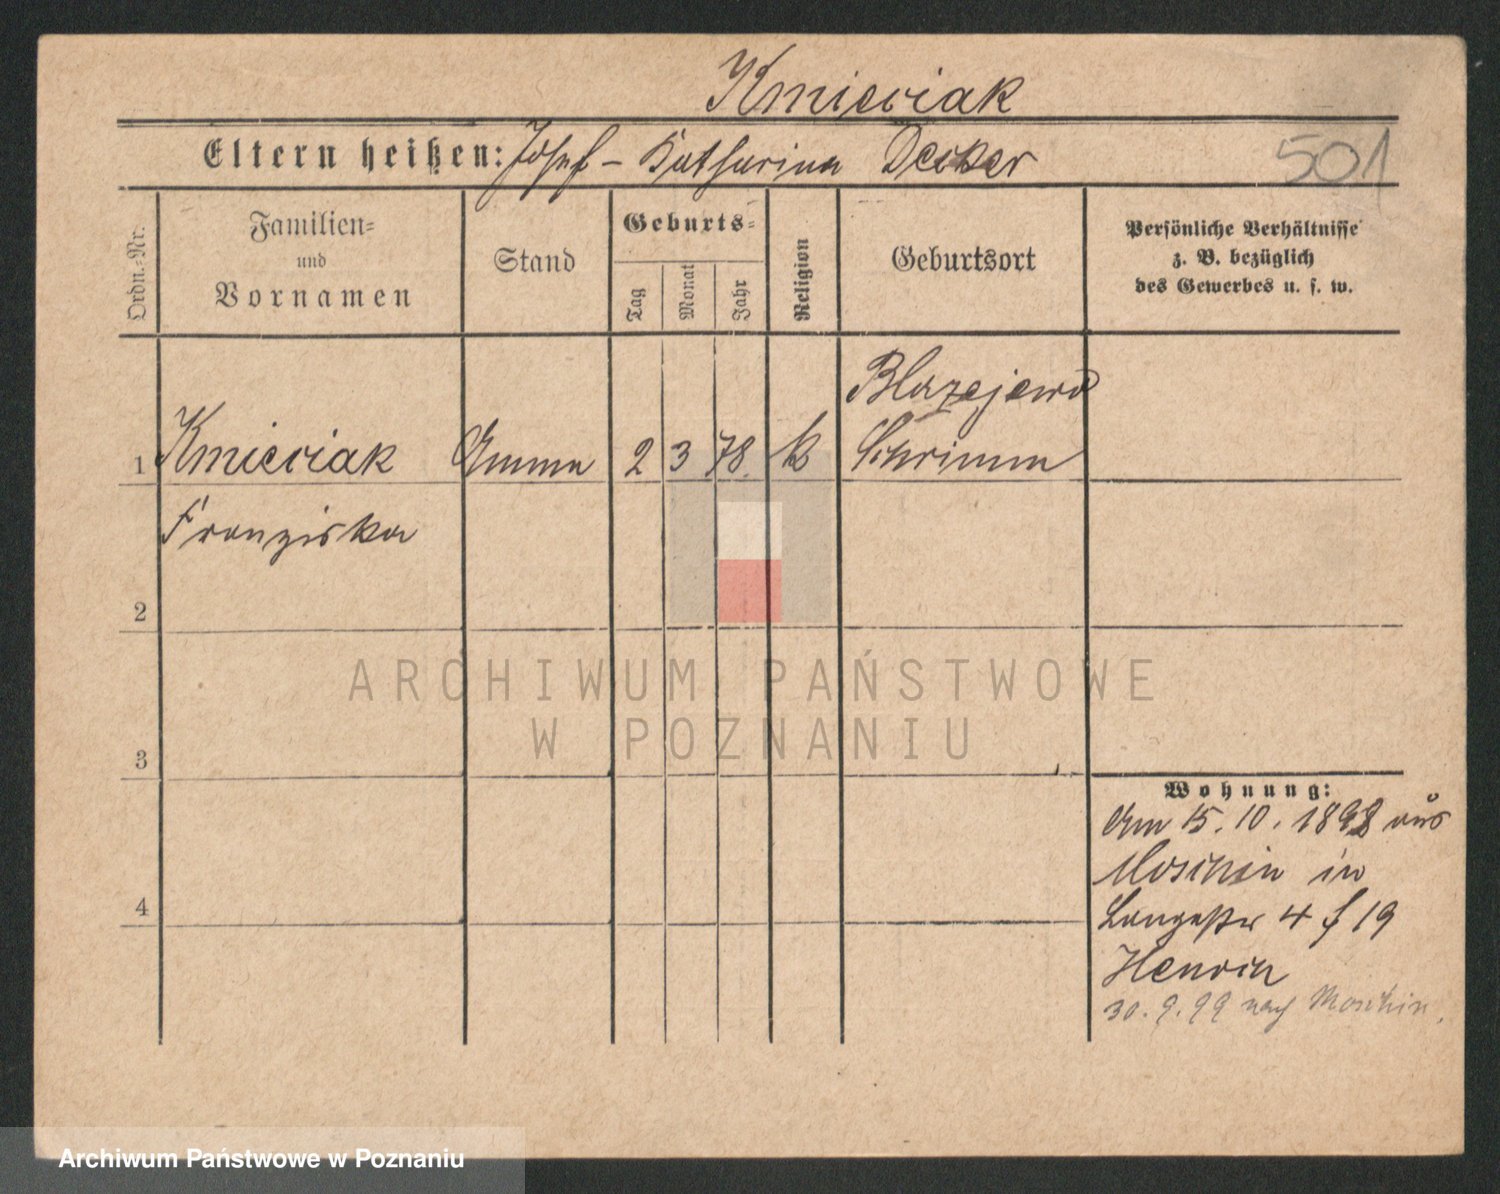 Kmieciak
Eltern heißen: Josef - Katharina Decker
501
Ordn.-Nr.
Familien-
und
Vornamen
Stand
Geburts-
Tag
Monat
Jahr
Religion
Geburtsort
Persönliche Verhältnisse
z. B. bezüglich
des Gewerbes u. s. w.
1
Kmieciak
Amme
2
3
78
k
Blazejewo
Schrimm
Franziska
2
3
4
Wohnung:
Am 15.10.1898 aus
Moschin in
Langestr 4 f 19
Henoch
30.9.99 nach Moschin.
ARCHIWUM PAŃSTWOWE
W POZNANIU
Archiwum Państwowe w Poznaniu